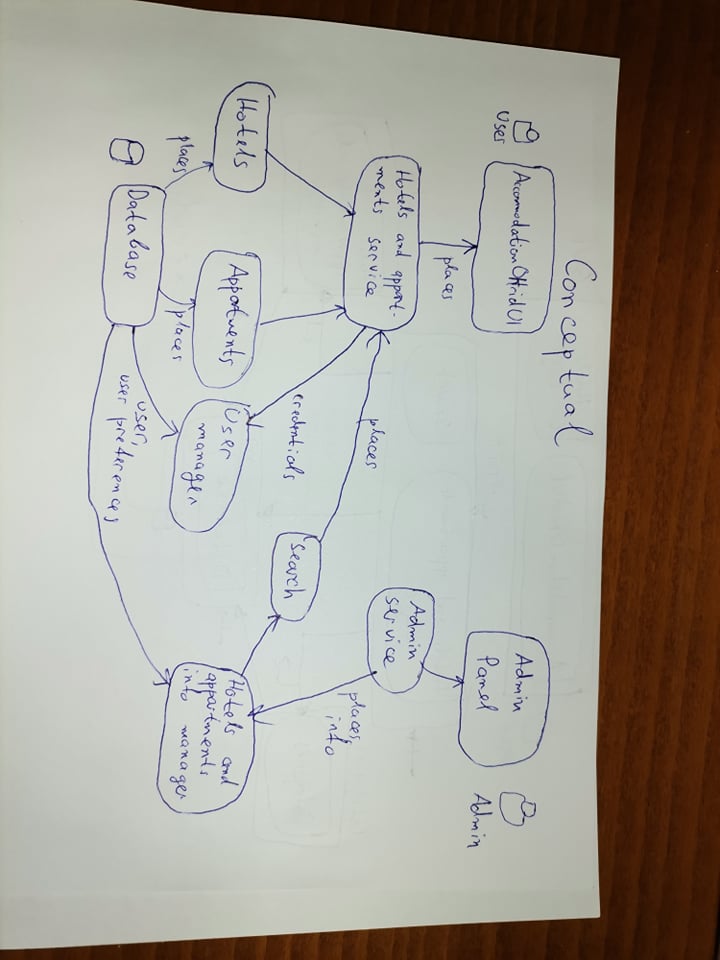 Conceptual
Accomodation OHrid UI
User
Admin
Panel
Admin
places
Hotels and appart-
ments service
Admin
service
places
places,
info
credentials
search
Hotels
Appartments
User
manager
Hotels and
appartments
info manager
places
places
Database
user,
user preferences